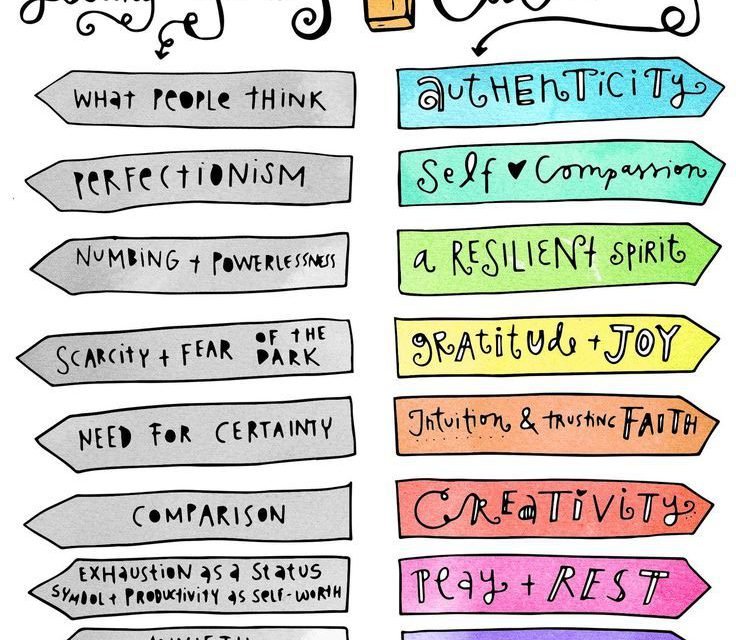 WHAT PEOPLE THINK
AUTHENTICITY
PERFECTIONISM
Self ♥ Compassion
NUMBING + POWERLESSNESS
a RESILIENT SPIRIT
SCARCITY + FEAR OF THE DARK
gRAtitude + JOY
NEED FOR CERTAINTY
Intuition & TRUSTING FAITH
COMPARISON
CREATIVITY
EXHAUSTION AS A STATUS
SYMBOL + PRODUCTIVITY AS SELF-WORTH
Play + REST